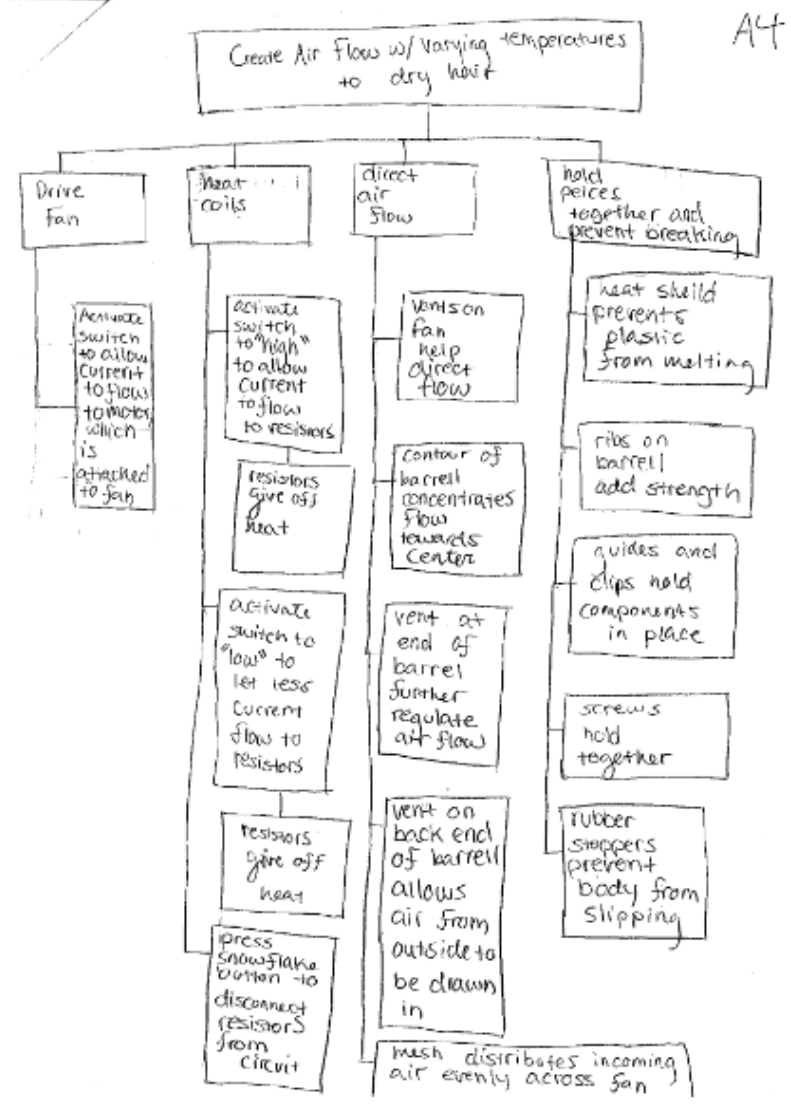 A4
Create Air Flow w/ varying temperatures
to dry hair
Drive
Fan
heat
coils
direct
air
flow
hold
peices
together and
prevent breaking
Activate
switch
to allow
current
to flow
to motor
which
is
attached
to fan
activate
switch
to "high"
to allow
current
to flow
to resistors
resistors
give off
heat
activate
switch to
"low" to
let less
current
flow to
resistors
resistors
give off
heat
press
snowflake
button to
disconnect
resistors
from
circuit
vents on
fan
help
direct
flow
contour of
barrell
concentrates
flow
towards
center
vent at
end of
barrel
further
regulate
air flow
vent on
back end
of barrell
allows
air from
outside to
be drawn
in
mesh distributes incoming
air evenly across fan
heat sheild
prevents
plastic
from melting
ribs on
barrell
add strength
guides and
clips hold
components
in place
screws
hold
together
rubber
stoppers
prevent
body from
slipping